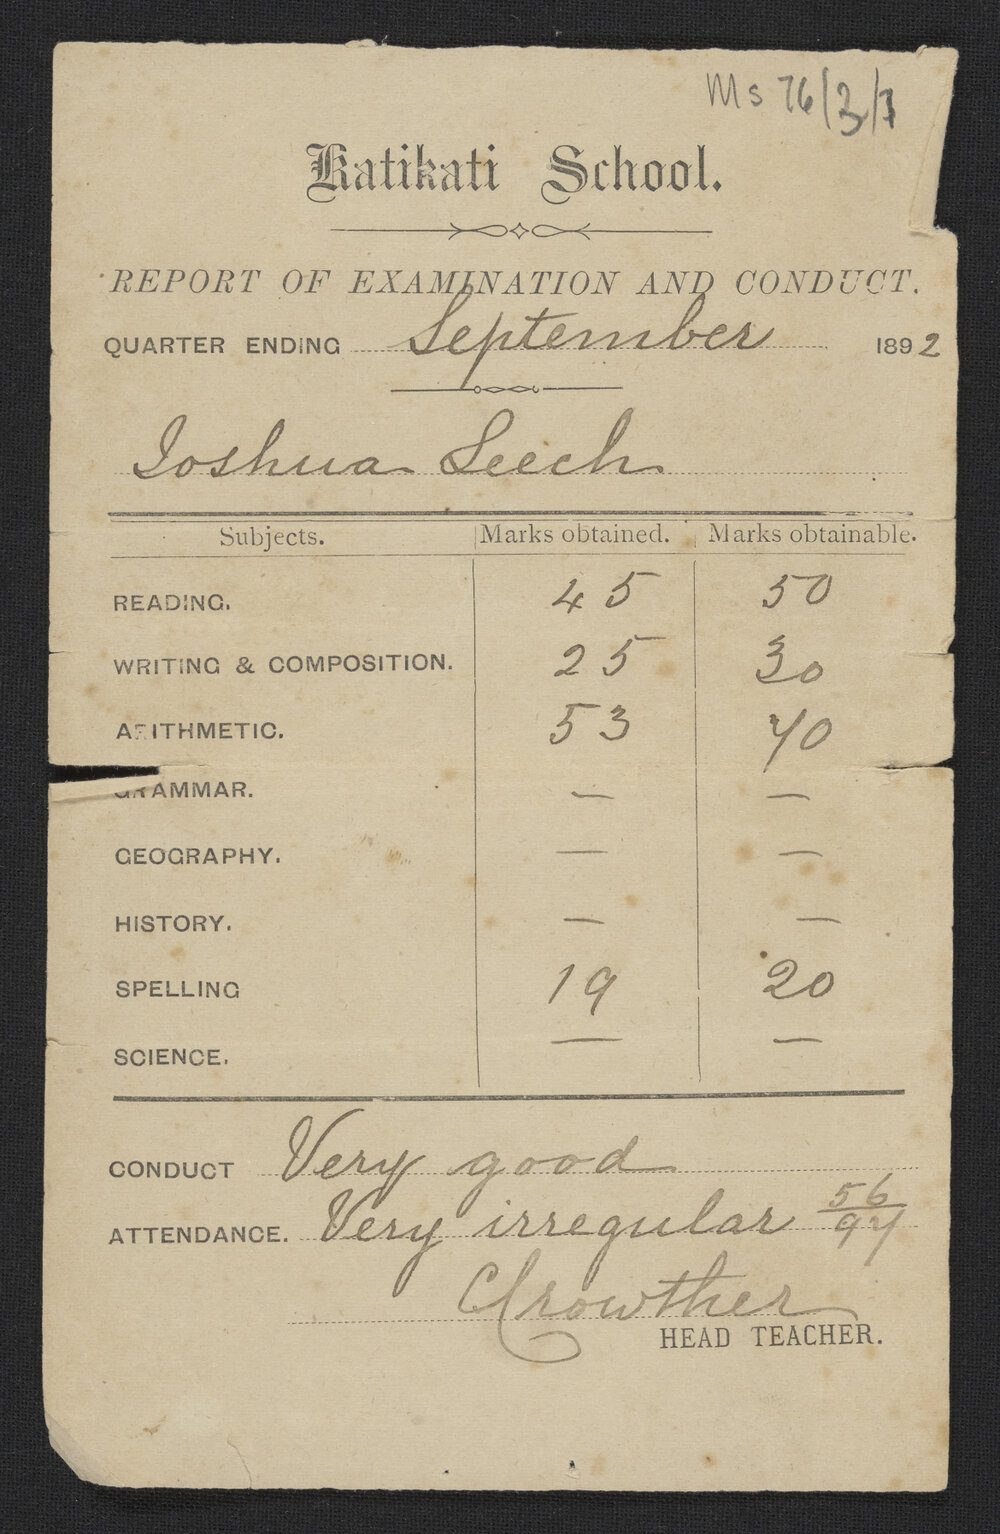 Ms 76/3/7
Katikati School.
REPORT OF EXAMINATION AND CONDUCT.
QUARTER ENDING September 1892
Joshua Leech
Subjects. Marks obtained. Marks obtainable.
READING. 45 50
WRITING & COMPOSITION. 25 30
ARITHMETIC. 53 70
GRAMMAR. — —
GEOGRAPHY. — —
HISTORY. — —
SPELLING 19 20
SCIENCE. — —
CONDUCT Very good
ATTENDANCE. Very irregular 56/97
Crowther
HEAD TEACHER.